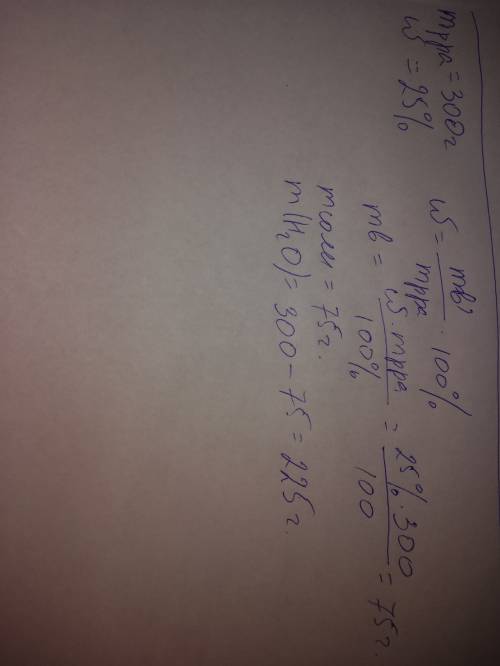 mрра = 300г
ω = 25%
ω = mв / mрра · 100%
mв = ω · mрра / 100% = 25% · 300 / 100 = 75г.
mсоли = 75г.
m(H₂O) = 300 – 75 = 225г.